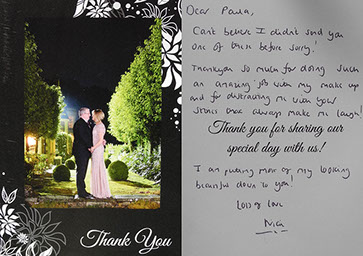 Thank You
Dear Paula,
Can't believe I didn't send you
one of these before sorry!
Thankyou so much for doing such
an amazing job with my make up
and for distracting me with your
stories once always make me laugh!
Thank you for sharing our
special day with us!
I am putting most of my looking
beautiful down to you!
Lots of love